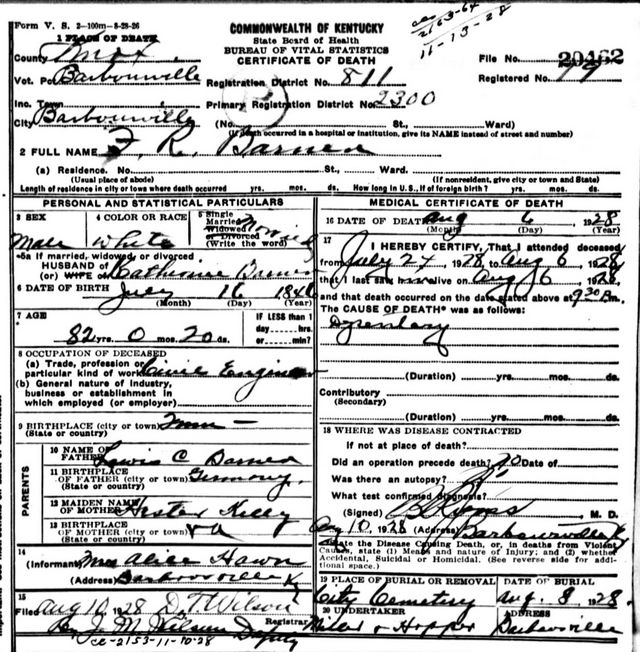 Form V. S. 2-100m-8-28-26
COMMONWEALTH OF KENTUCKY
State Board of Health
BUREAU OF VITAL STATISTICS
CERTIFICATE OF DEATH
cc 2153-64
11-13-28
1 PLACE OF DEATH
County Knox
File No. 20462
Vot. Pct Barbourville
Registration District No. 811
Registered No. 79
Inc. Town
Primary Registration District No. 2300
City Barbourville (No. St., Ward)
(If death occurred in a hospital or institution, give its NAME instead of street and number)
2 FULL NAME F. R. Barner
(a) Residence. No. St., Ward.
(Usual place of abode) (If nonresident, give city or town and State)
Length of residence in city or town where death occurred yrs. mos. ds. How long in U. S., if of foreign birth? yrs. mos. ds.
PERSONAL AND STATISTICAL PARTICULARS
3 SEX
Male
4 COLOR OR RACE
White
5 Single
Married
Widowed
or Divorced
(Write the word)
5a If married, widowed, or divorced
HUSBAND of
(or) WIFE of Catherine
6 DATE OF BIRTH July 16 1846
(Month) (Day) (Year)
7 AGE
82 yrs. 0 mos. 20 ds.
IF LESS than 1
day hrs.
or min?
8 OCCUPATION OF DECEASED
(a) Trade, profession or
particular kind of work Civil Engineer
(b) General nature of industry,
business or establishment in
which employed (or employer)
9 BIRTHPLACE (city or town) Tenn -
(State or country)
PARENTS
10 NAME OF
FATHER Lewis C Barner
11 BIRTHPLACE
OF FATHER (city or town) Germany
(State or country)
12 MAIDEN NAME
OF MOTHER Hester Kelly
13 BIRTHPLACE
OF MOTHER (city or town) Va
(State or country)
14
(Informant) Mrs Alice Hawn
(Address) Barboursville Ky
15
Filed Aug 10 1928 D. T. Wilson
Registrar
By J. M. Wilson Deputy
cc-2153-11-10-28
MEDICAL CERTIFICATE OF DEATH
16 DATE OF DEATH Aug 6 1928
(Month) (Day) (Year)
17
I HEREBY CERTIFY, That I attended deceased
from July 24 1928 to Aug 6 1928
that I last saw him alive on Aug 6 1928
and that death occurred on the date stated above at 9:30 Pm.
The CAUSE OF DEATH* was as follows:
Dysentary
(Duration) yrs. mos. ds.
Contributory
(Secondary)
(Duration) yrs. mos. ds.
18 WHERE WAS DISEASE CONTRACTED
If not at place of death?
Did an operation precede death? no Date of
Was there an autopsy?
What test confirmed diagnosis?
(Signed) M. D.
Aug 10 1928 (Address) Barbourville Ky
*State the Disease Causing Death, or, in deaths from Violent
Causes, state (1) Means and nature of Injury; and (2) whether
Accidental, Suicidal or Homicidal. (See reverse side for addi-
tional space.)
19 PLACE OF BURIAL OR REMOVAL
City Cemetery
DATE OF BURIAL
Aug. 8 1928
20 UNDERTAKER
Miler & Hopper
ADDRESS
Barboursville